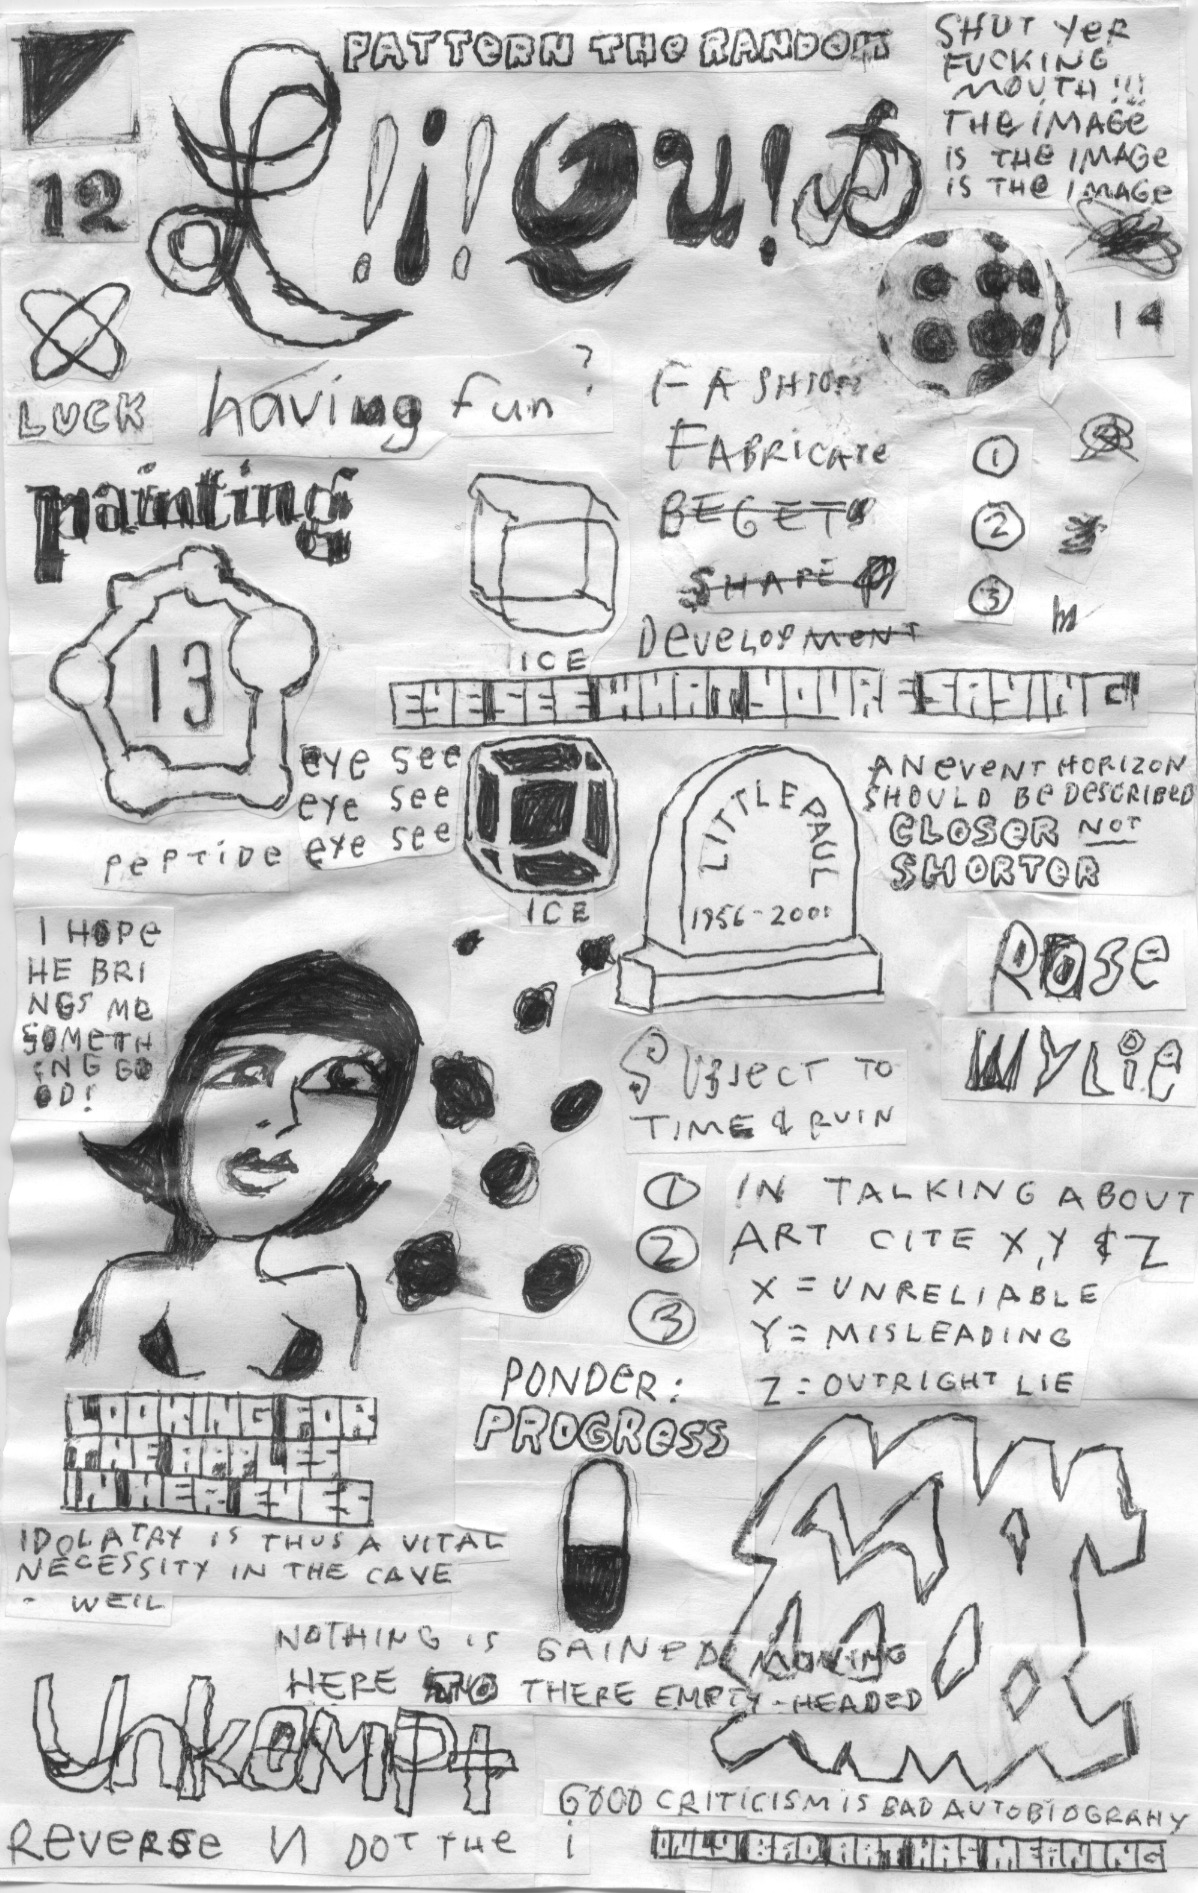 PATTERN THE RANDOM
SHUT YER
FUCKING
MOUTH!!!
THE IMAGE
IS THE IMAGE
IS THE IMAGE
L!i!QU!D
12
14
LUCK
having fun?
FASHION
FABRICATE
BEGETS
SHAPE
DEVELOPMENT
1
2
3
painting
13
ICE
EYE SEE WHAT YOUR SAYING
eye see
eye see
eye see
PEPTIDE
ICE
LITTLE PAUL
1956-2001
AN EVENT HORIZON
SHOULD BE DESCRIBED
CLOSER NOT
SHORTER
I HOPE
HE BRI
NGS ME
SOMETH
ING GO
OD!
ROSE
WYLIE
SUBJECT TO
TIME & RUIN
1
2
3
IN TALKING ABOUT
ART CITE X, Y & Z
X = UNRELIABLE
Y = MISLEADING
Z = OUTRIGHT LIE
PONDER:
PROGRESS
LOOKING FOR
THE APPLES
IN HER EYES
IDOLATRY IS THUS A VITAL
NECESSITY IN THE CAVE
- WEIL
NOTHING IS GAINED MOVING
HERE TO THERE EMPTY-HEADED
UNKEMPT
GOOD CRITICISM IS BAD AUTOBIOGRAHY
REVERSE И DOT THE i
ONLY BAD ART HAS MEANING